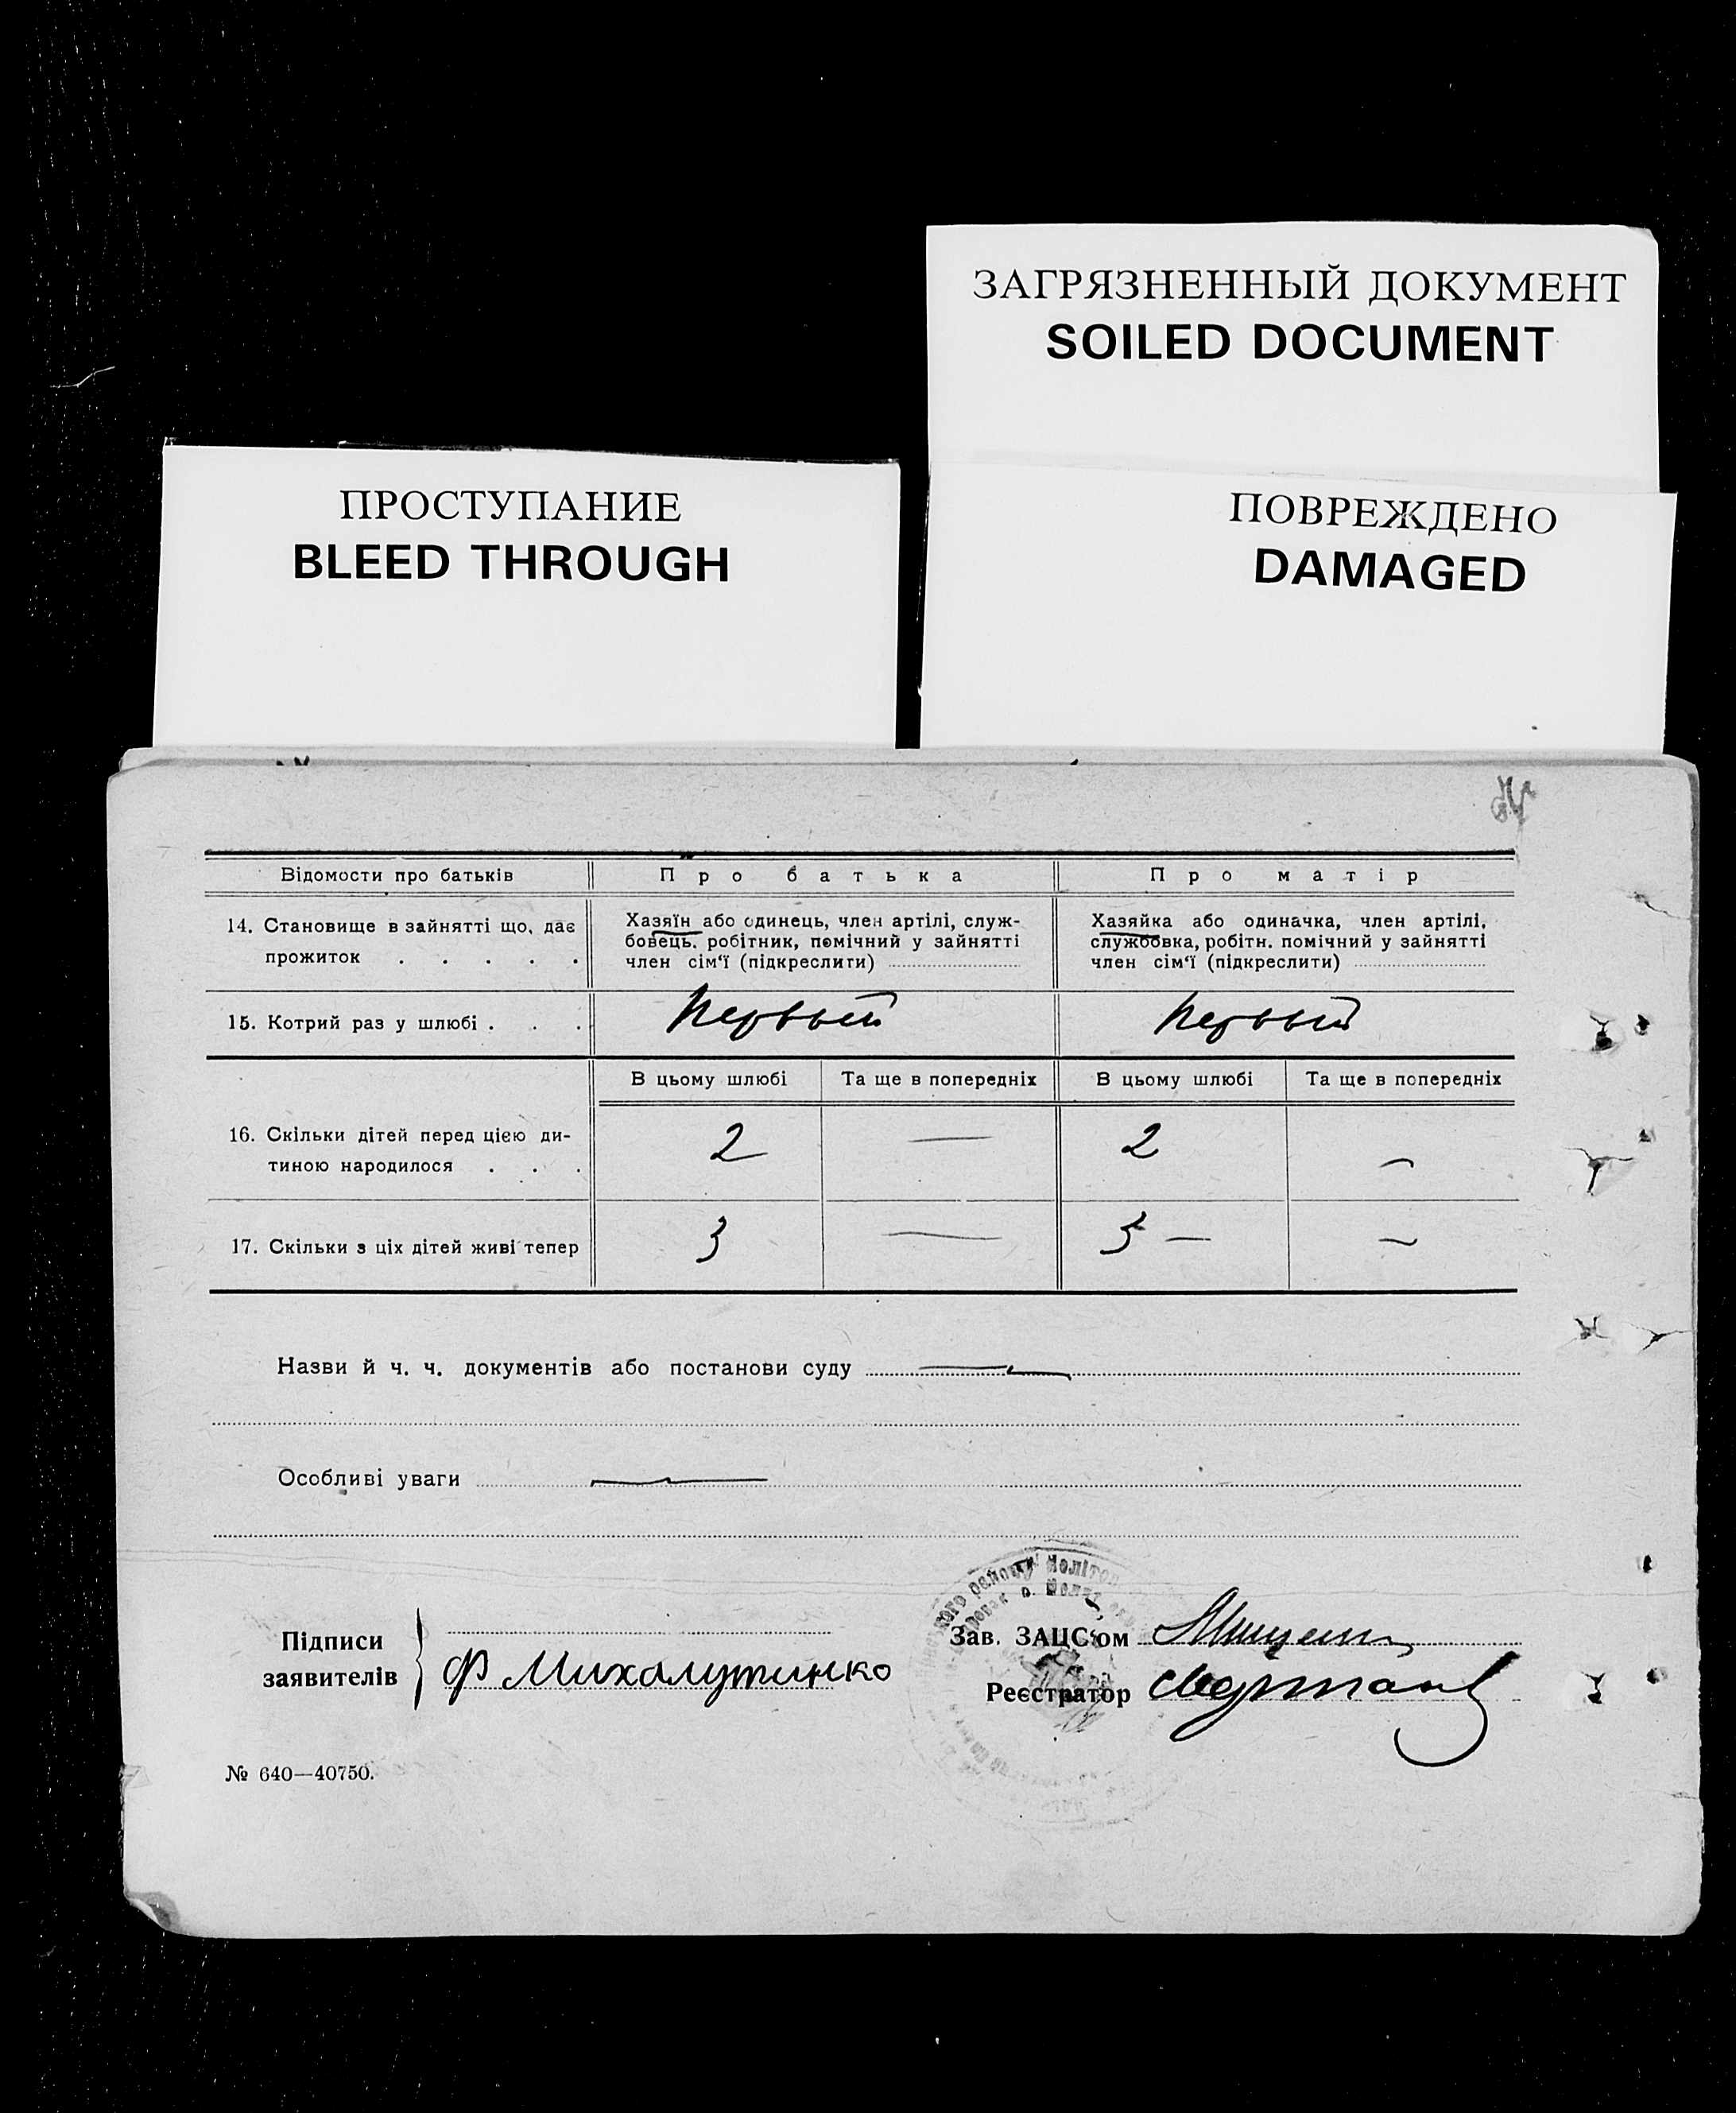 ЗАГРЯЗНЕННЫЙ ДОКУМЕНТ
SOILED DOCUMENT
ПРОСТУПАНИЕ
BLEED THROUGH
ПОВРЕЖДЕНО
DAMAGED
Відомости про батьків
Про батька
Про матір
14. Становище в зайнятті що, дає
прожиток . . . . .
Хазяїн або одинець, член артілі, служ-
бовець. робітник, помічний у зайнятті
член сім‘ї (підкреслити)
Хазяйка або одиначка, член артілі,
службовка, робітн. помічний у зайнятті
член сім‘ї (підкреслити)
15. Котрий раз у шлюбі . . .
Первый
Первый
В цьому шлюбі
Та ще в попередніх
В цьому шлюбі
Та ще в попередніх
16. Скільки дітей перед цією ди-
тиною народилося . . .
2
—
2
—
17. Скільки з ціх дітей живі тепер
3
—
3 —
—
Назви й ч. ч. документів або постанови суду —
Особливі уваги —
Підписи
заявителів
Ф
Зав. ЗАЦС‘ом
Реєстратор
№ 640—40750.